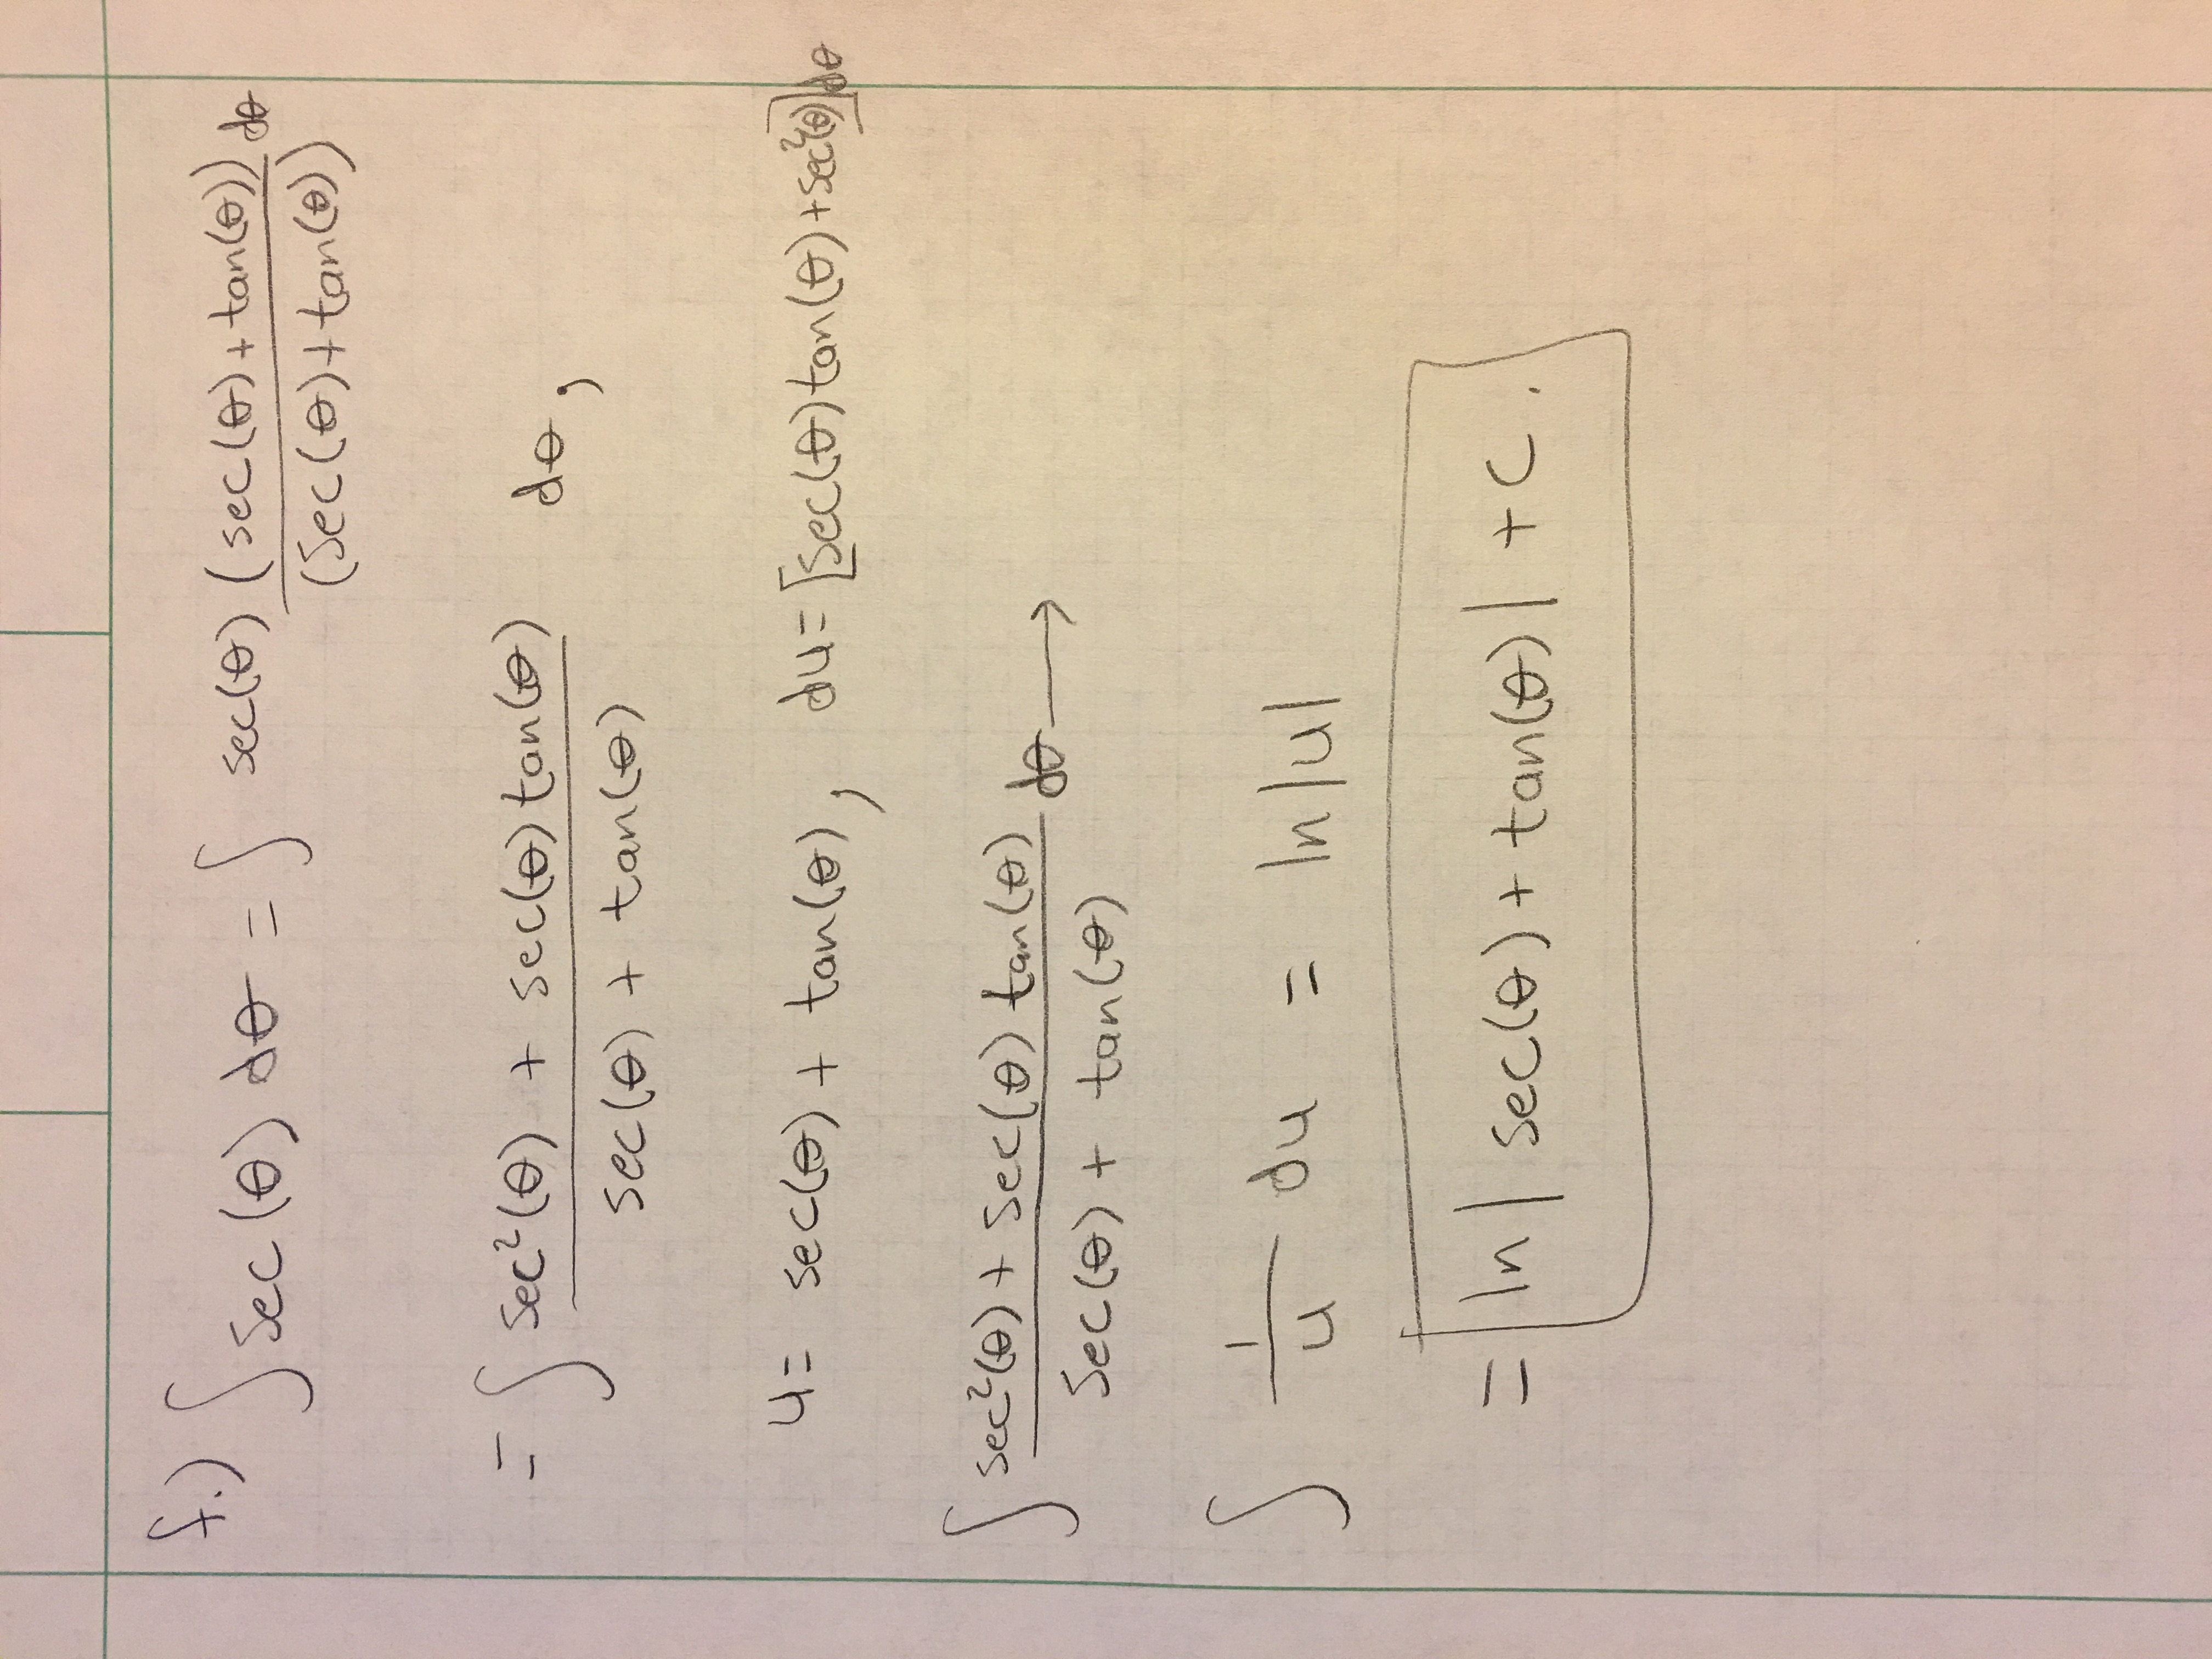 f.) ∫ sec(θ) dθ = ∫ sec(θ) (sec(θ)+tan(θ))/(sec(θ)+tan(θ)) dθ
= ∫ (sec²(θ) + sec(θ)tan(θ))/(sec(θ) + tan(θ)) dθ,
u= sec(θ) + tan(θ), du= [sec(θ)tan(θ)+sec²(θ)]dθ
∫ (sec²(θ) + sec(θ) tan(θ))/(sec(θ) + tan(θ)) dθ →
∫ 1/u du = ln|u|
= ln | sec(θ) + tan(θ) | + C.